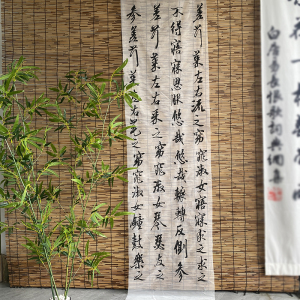 白居易長恨歌
差荇菜左右流之窈窕淑女寤寐求之求之
不得寤寐思服悠哉悠哉輾轉反側參
差荇菜左右采之窈窕淑女琴瑟友之
參差荇菜左右芼之窈窕淑女鐘鼓樂之